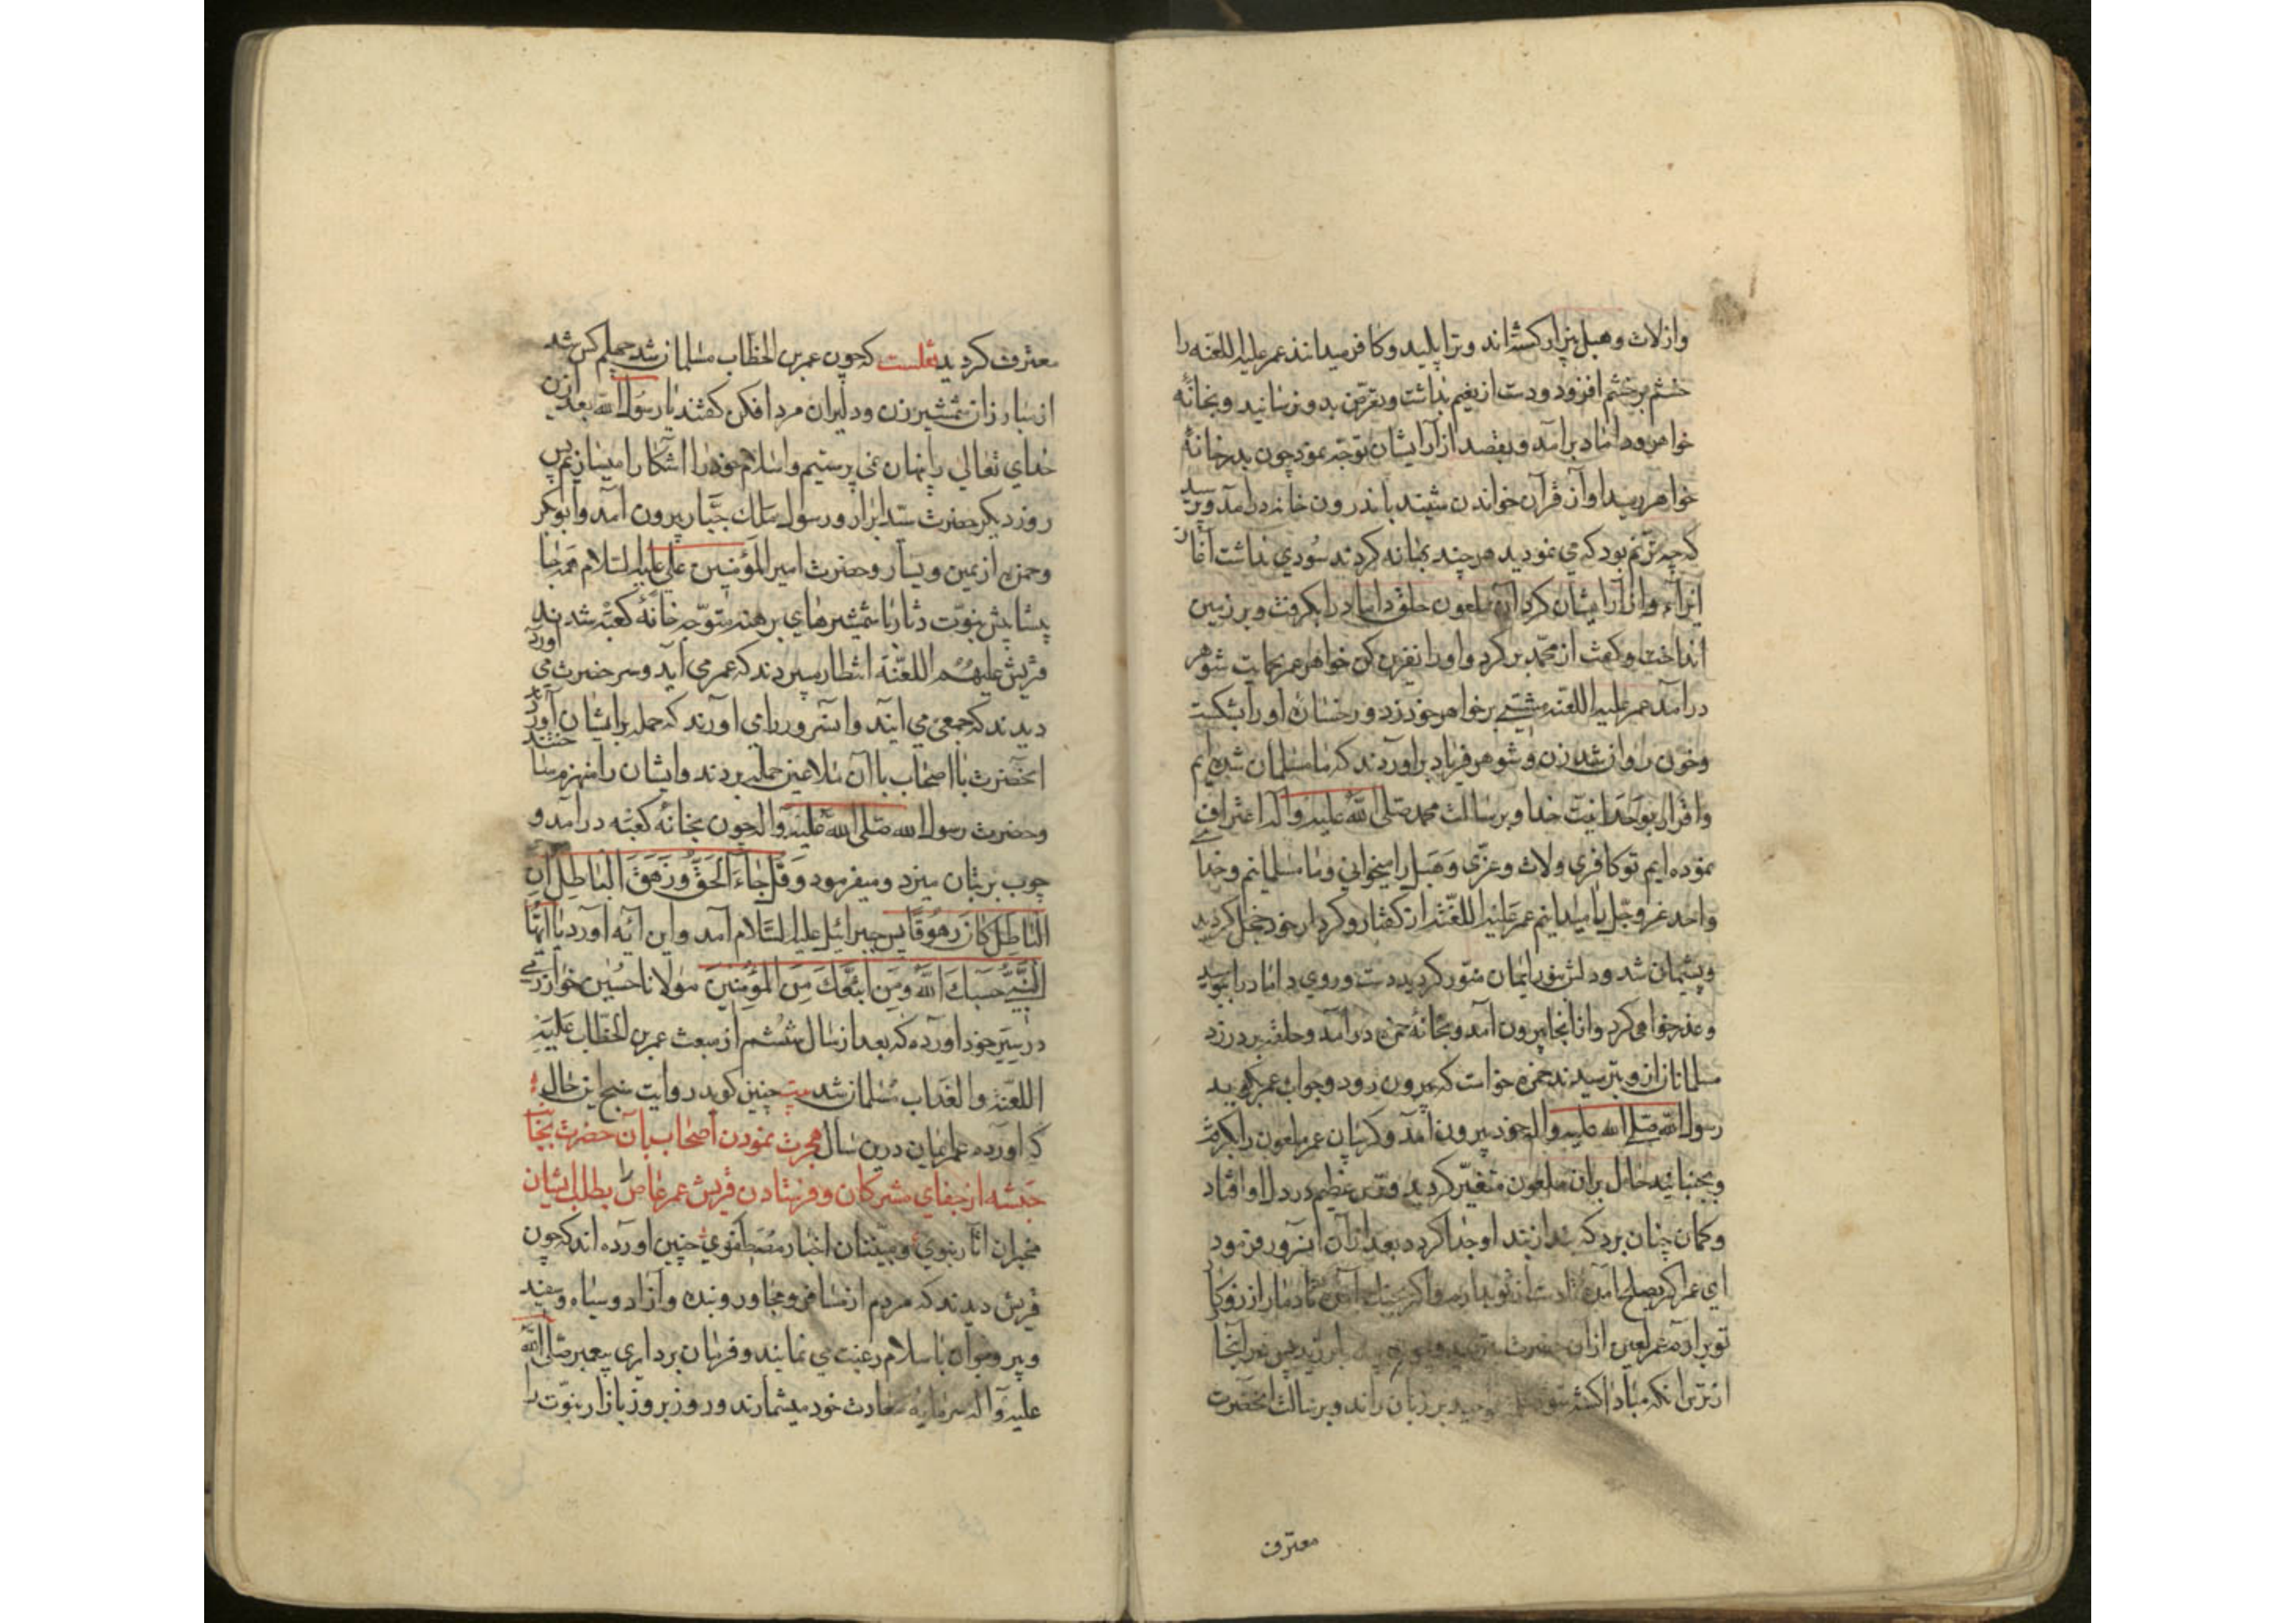 واز لات وهبل بیزار کشته‌اند وترا پلید وکافر میدانند عمر علیه اللعنه را
خشم بر خشم افزود ودست از نعیم بداشت وتعرّض بدو نرسانید وبخانهٔ
خواهر وداماد برآمد وبقصد آزار ایشان توجّه نمود چون بدر خانهٔ
خواهر رسید آواز قرآن خواندن شنید باندرون خانه درآمد وپرسید
که چه ترنّم بود که می نمودید هر چند بهانه کردند سودی نداشت آغاز
ایذاء وآزار ایشان کرد آن ملعون حلق داماد را بکرفت وبر زمین
انداخت وکفت از محمّد بر کرد واورا نفرین کن خواهر عمر بحمایت شوهر
درآمد عمر علیه اللعنه مشتی بر خواهر خود زد ورخساره اورا بشکست
وخون روان شد زن وشوهر فریاد برآوردند که ما مسلمان شده‌ایم
واقرار بوحدانیت خدا وبرسالت محمد صلی الله علیه واله اعتراف
نموده ایم تو کافری ولات وعزّی وهبل را میخوانی وما مسلمانیم وخدا
واحد عز وجّل را میدانیم عمر علیه اللعنه از کفتار وکردار خود خجل کردید
وپشیمان شد ودلش بنور ایمان منوّر کردید دست وروی داماد را ببوسید
وعذر خواهی کرد واز انجا بیرون آمد وبخانهٔ حمزه درآمد وحلقه بر در زد
مسلمانان از او بترسیدند حمزه خواست که بیرون رود وجواب عمر کوید
رسول الله صلی الله علیه واله خود بیرون آمد وکریبان عمر ملعون را بکرفت
وبجنبانید حال بران ملعون متغیّر کردید وترس عظیم در دل او افتاد
وکمان چنان برد که بند از بند او جدا کرد بعد از آن انسرور فرمود
ای عمر اکر بصلح آمدهٔ دست از تو بدارم واکر بجنك آمدهٔ تا دمار از روزکار
تو برارم عمر لعین از ان حضرت
از ترس انکه مبادا کشته شود بر زبان راند وبرسالت انحضرت
معترف
معترف کردید نقلست که چون عمر بن الخطّاب مسلمان شد چهلم کس شد
از مبارزان شمشیر زن ودلیران مرد افکن کفتند یا رسول الله بعد ازین
خدای تعالی را پنهان نمی پرستیم واسلام خود را آشکارا میسازیم پس
روز دیکر حضرت سیّد ابرار ورسول ملك جبّار بیرون آمد وابو بکر
وحمزه از یمین ویسار وحضرت امیر المؤمنین علی علیه السلام همه جا
پیشاپیش نبوّت دثار با شمشیرهای برهنه متوجّه خانهٔ کعبه شدند
قریش علیهم اللعنّة انتظار میبردند که عمر می آید وسر حضرت می آورد
دیدند که جمعی می ایند وانسرور را می اورند که حمله بر ایشان آورند
انحضرت با اصحاب با آن ملاعین حمله بردند وایشان را منهزم ساختند
وحضرت رسول الله صلی الله علیه واله چون بخانهٔ کعبه درآمد و
چوب بر بتان میزد ومیفرمود وَقُل جَاءَ الحَقُّ وَزَهَقَ البَاطِل اِنَّ
البَاطِلَ کَانَ زَهُوقًا پس جبرائیل علیه السّلام آمد واین آیه آورد یا ایّها
النَّبیُّ حَسبُكَ الله وَمَنِ اتّبَعَكَ مِنَ المُؤمِنینَ مولانا حسین خوارزمی
در سیَر خود اورده که بعد از سال ششم از مبعث عمر بن الخطّاب علیه
اللّعنة والعذاب مسلمان شد چنین کوید روایت سنج این حال
که اورده عمر ایمان درین سال هجرت نمودن اصحاب بآن حضرت بجانب
حبشه از جفای مشرکان وفرستادن قریش عمر عاص را بطلب ایشان
مخبران آثار نبوی ومبیّنان اخبار مصطفوی چنین اورده اند که چون
قریش دیدند که مردم از مسافر ومجاور وبنده وآزاد وسیاه وسفید
وپیر وجوان باسلام رغبت می نمایند وفرمان برداری پیغمبر صلی الله
علیه وآله سرمایهٔ سعادت خود میشمارند وروز بروز بازار نبوّت را